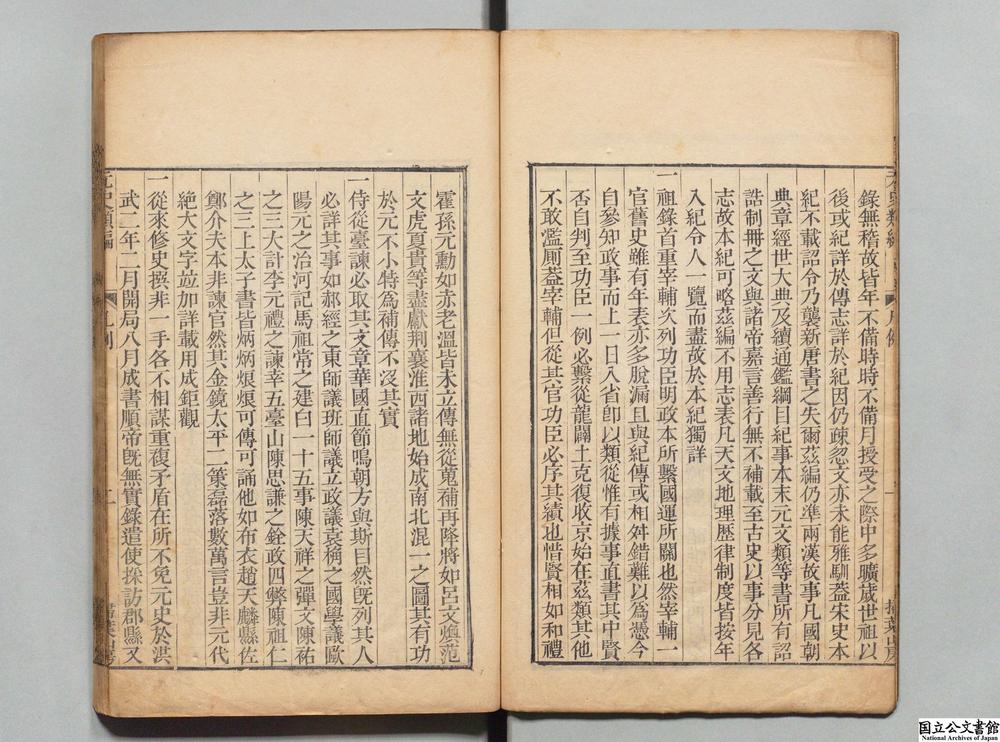 錄無稽故皆年不備時時不備月授受之際中多曠歲世祖以
後或紀詳於傳志詳於紀因仍疎忽文亦未能雅馴蓋宋史本
紀不載詔令乃襲新唐書之失爾茲編仍準兩漢故事凡國朝
典章經世大典及續通鑑綱目紀事本末元文類等書所有詔
誥制冊之文與諸帝嘉言善行無不補載至古史以事分見各
志故本紀可略茲編不用志表凡天文地理歷律制度皆按年
入紀令人一覽而盡故於本紀獨詳
一祖錄首重宰輔次列功臣明政本所繫國運所關也然宰輔一
官舊史雖有年表亦多脫漏且與紀傳或相舛錯難以為憑今
自參知政事而上一日入省卽以類從惟有據事直書其中賢
否自判至功臣一例必繫從龍闢土克復收京始在茲類其他
不敢濫厠葢宰輔但從其官功臣必序其績也惜賢相如和禮
霍孫元勳如赤老溫皆未立傳無從蒐補再降將如呂文煥范
文虎夏貴等盡獻荆襄淮西諸地始成南北混一之圖其有功
於元不小特為補傳不沒其實
一侍從臺諫必取其文章華國直節鳴朝方與斯目然旣列其人
必詳其事如郝經之東師議班師議立政議袁桷之國學議歐
陽元之治河記馬祖常之建白一十五事陳天祥之彈文陳祐
之三大計李元禮之諫幸五臺山陳思謙之銓政四弊陳祖仁
之三上太子書皆炳炳烺烺可傳可誦他如布衣趙天麟縣佐
鄭介夫本非諫官然其金鏡太平二策磊落數萬言豈非元代
絶大文字竝加詳載用成鉅觀
一從來修史撰非一手各不相謀重復矛盾在所不免元史於洪
武二年二月開局八月成書順帝旣無實錄遣使採訪郡縣又
元史類編
凡例
二
国立公文書館
National Archives of Japan